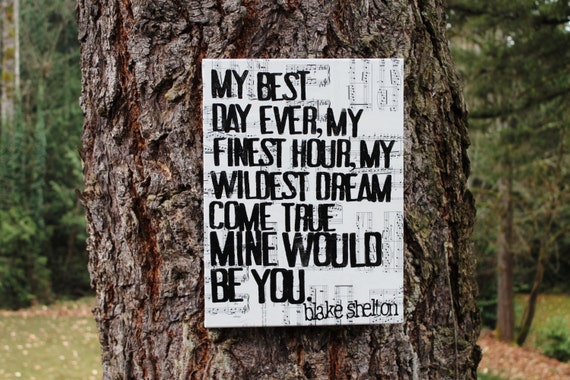 MY BEST
DAY EVER, MY
FINEST HOUR, MY
WILDEST DREAM
COME TRUE
MINE WOULD
BE YOU.
blake shelton